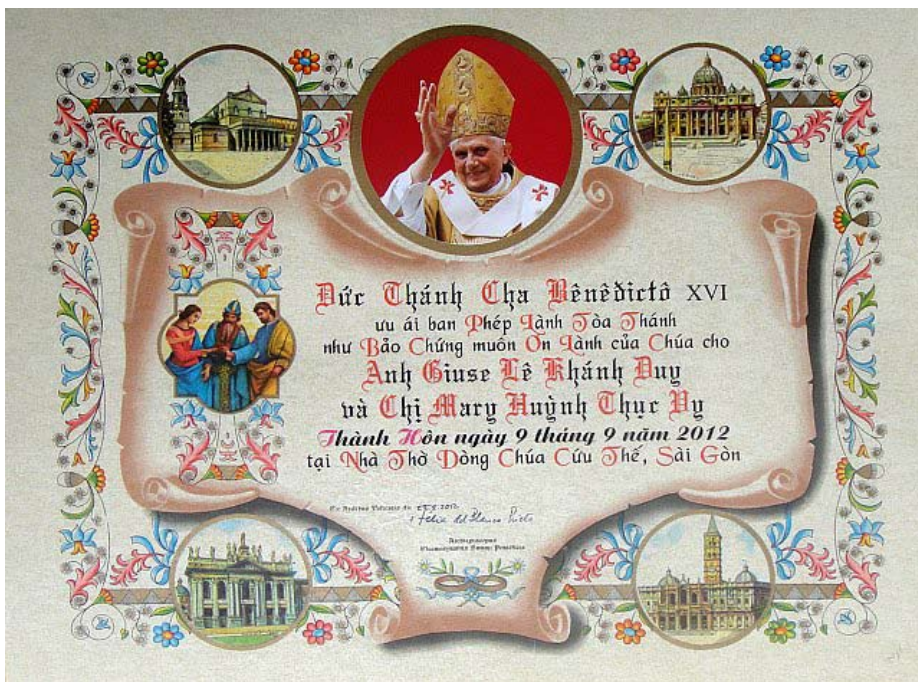 Đức Thánh Cha Bênêđictô XVI
ưu ái ban Phép Lành Tòa Thánh
như Bảo Chứng muôn Ơn Lành của Chúa cho
Anh Giuse Lê Khánh Duy
và Chị Mary Huỳnh Thục Vy
Thành Hôn ngày 9 tháng 9 năm 2012
tại Nhà Thờ Dòng Chúa Cứu Thế, Sài Gòn
Ex Aedibus Vaticanis die
+ Felix del Blanco Prieto
Archiepiscopus
Eleemosynarius Summi Pontificis